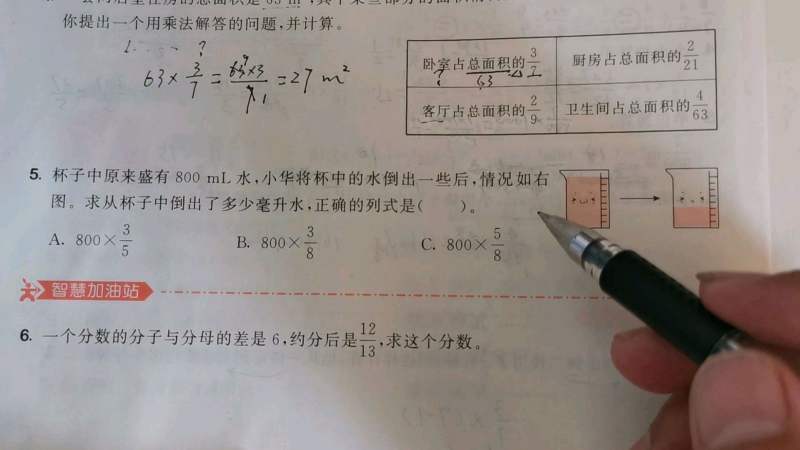 你提出一个用乘法解答的问题,并计算。
63×3/7=63×3/7=27 m²
卧室占总面积的3/7 厨房占总面积的2/21
? 63
客厅占总面积的2/9 卫生间占总面积的4/63
5. 杯子中原来盛有 800 mL 水,小华将杯中的水倒出一些后,情况如右
图。求从杯子中倒出了多少毫升水,正确的列式是( )。
A. 800×3/5 B. 800×3/8 C. 800×5/8
智慧加油站
6. 一个分数的分子与分母的差是 6,约分后是12/13,求这个分数。